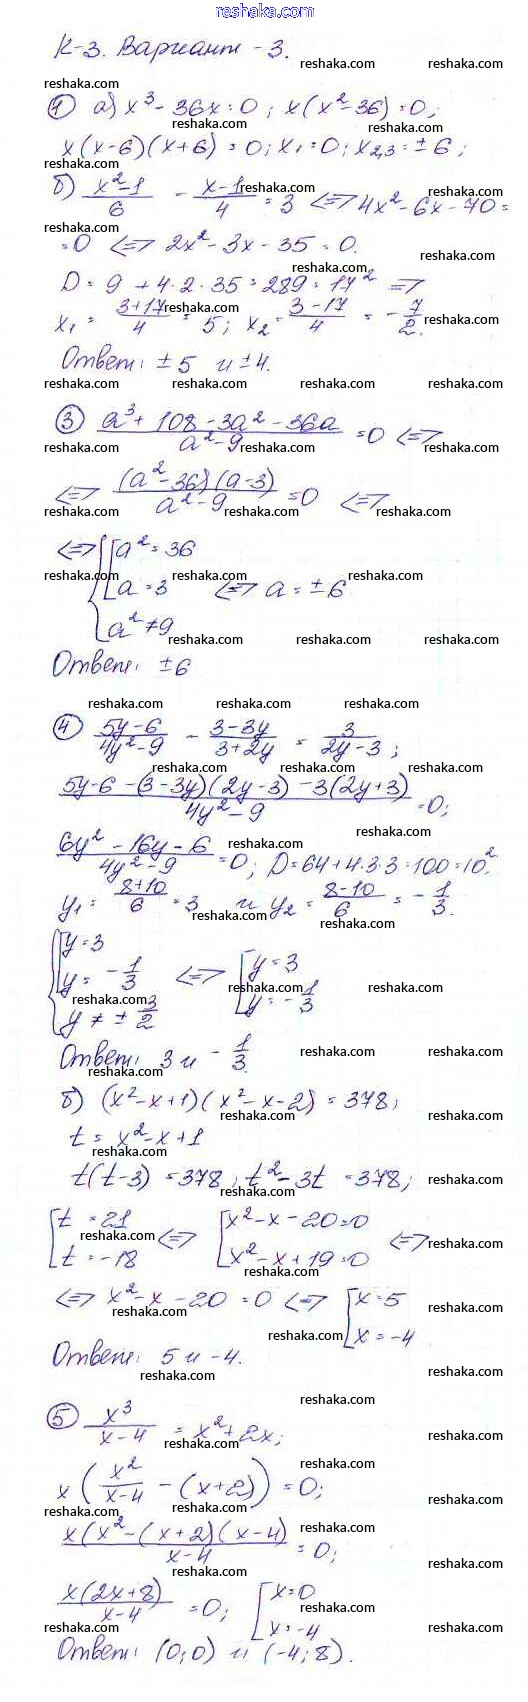 reshaka.com
К-3. Вариант-3.
① а) x³ - 36x = 0; x(x² - 36) = 0;
x(x-6)(x+6) = 0; x₁ = 0; x₂,₃ = ±6;
б) (x²-1)/6 - (x-1)/4 = 3 <=> 4x² - 6x - 70 =
= 0 <=> 2x² - 3x - 35 = 0.
D = 9 + 4·2·35 = 289 = 17² =>
x₁ = (3+17)/4 = 5; x₂ = (3-17)/4 = -7/2.
Ответ: ±5 и ±4.
③ (a³ + 108 - 3a² - 36a)/(a² - 9) = 0 <=>
<=> (a² - 36)(a - 3)/(a² - 9) = 0 <=>
<=> { [ a² = 36
a = 3 <=> a = ±6
a² ≠ 9
Ответ: ±6
④ (5y-6)/(4y²-9) - (3-3y)/(3+2y) = 3/(2y-3);
(5y-6 - (3-3y)(2y-3) - 3(2y+3))/(4y²-9) = 0;
(6y² - 16y - 6)/(4y²-9) = 0; D = 64 + 4·3·3 = 100 = 10².
y₁ = (8+10)/6 = 3 и y₂ = (8-10)/6 = -1/3.
{ [ y = 3
y = -1/3 <=> [ y = 3
y ≠ ±3/2 y = -1/3
Ответ: 3 и -1/3.
б) (x² - x + 1)(x² - x - 2) = 378;
t = x² - x + 1
t(t-3) = 378; t² - 3t = 378;
[ t = 21 <=> [ x² - x - 20 = 0 <=>
t = -18 x² - x + 19 = 0
<=> x² - x - 20 = 0 <=> [ x = 5
x = -4
Ответ: 5 и -4.
⑤ x³/(x-4) = x² + 2x;
x (x²/(x-4) - (x+2)) = 0;
x(x² - (x+2)(x-4)/(x-4) = 0;
x(2x+8)/(x-4) = 0; [ x = 0
x = -4
Ответ: (0; 0) и (-4; 8).